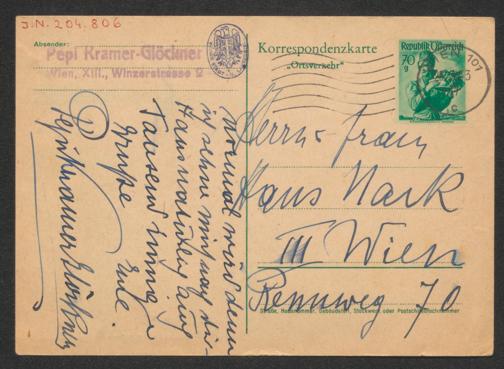 J.N. 204.806
Absender:
Pepi Kramer-Glöckner
Wien, XIII., Winzerstrasse 2
Korrespondenzkarte
„Ortsverkehr"
Republik Österreich
70
g
101
Herrn u. Frau
Hans Nark
III Wien
Rennweg 70
Straße, Hausnummer, Gebäudeteil, Stockwerk oder Postschließfachnummer
wird denn
ich sehne mich nach
Hans
Tausend innige
Grüße
Eure
Pepi Kramer Glöckner